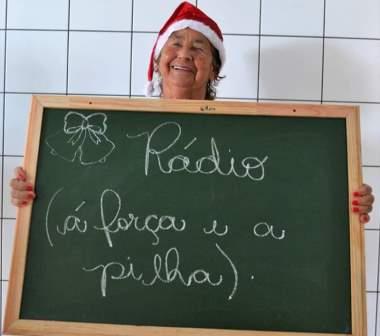 Rádio
(á força e a
pilha).